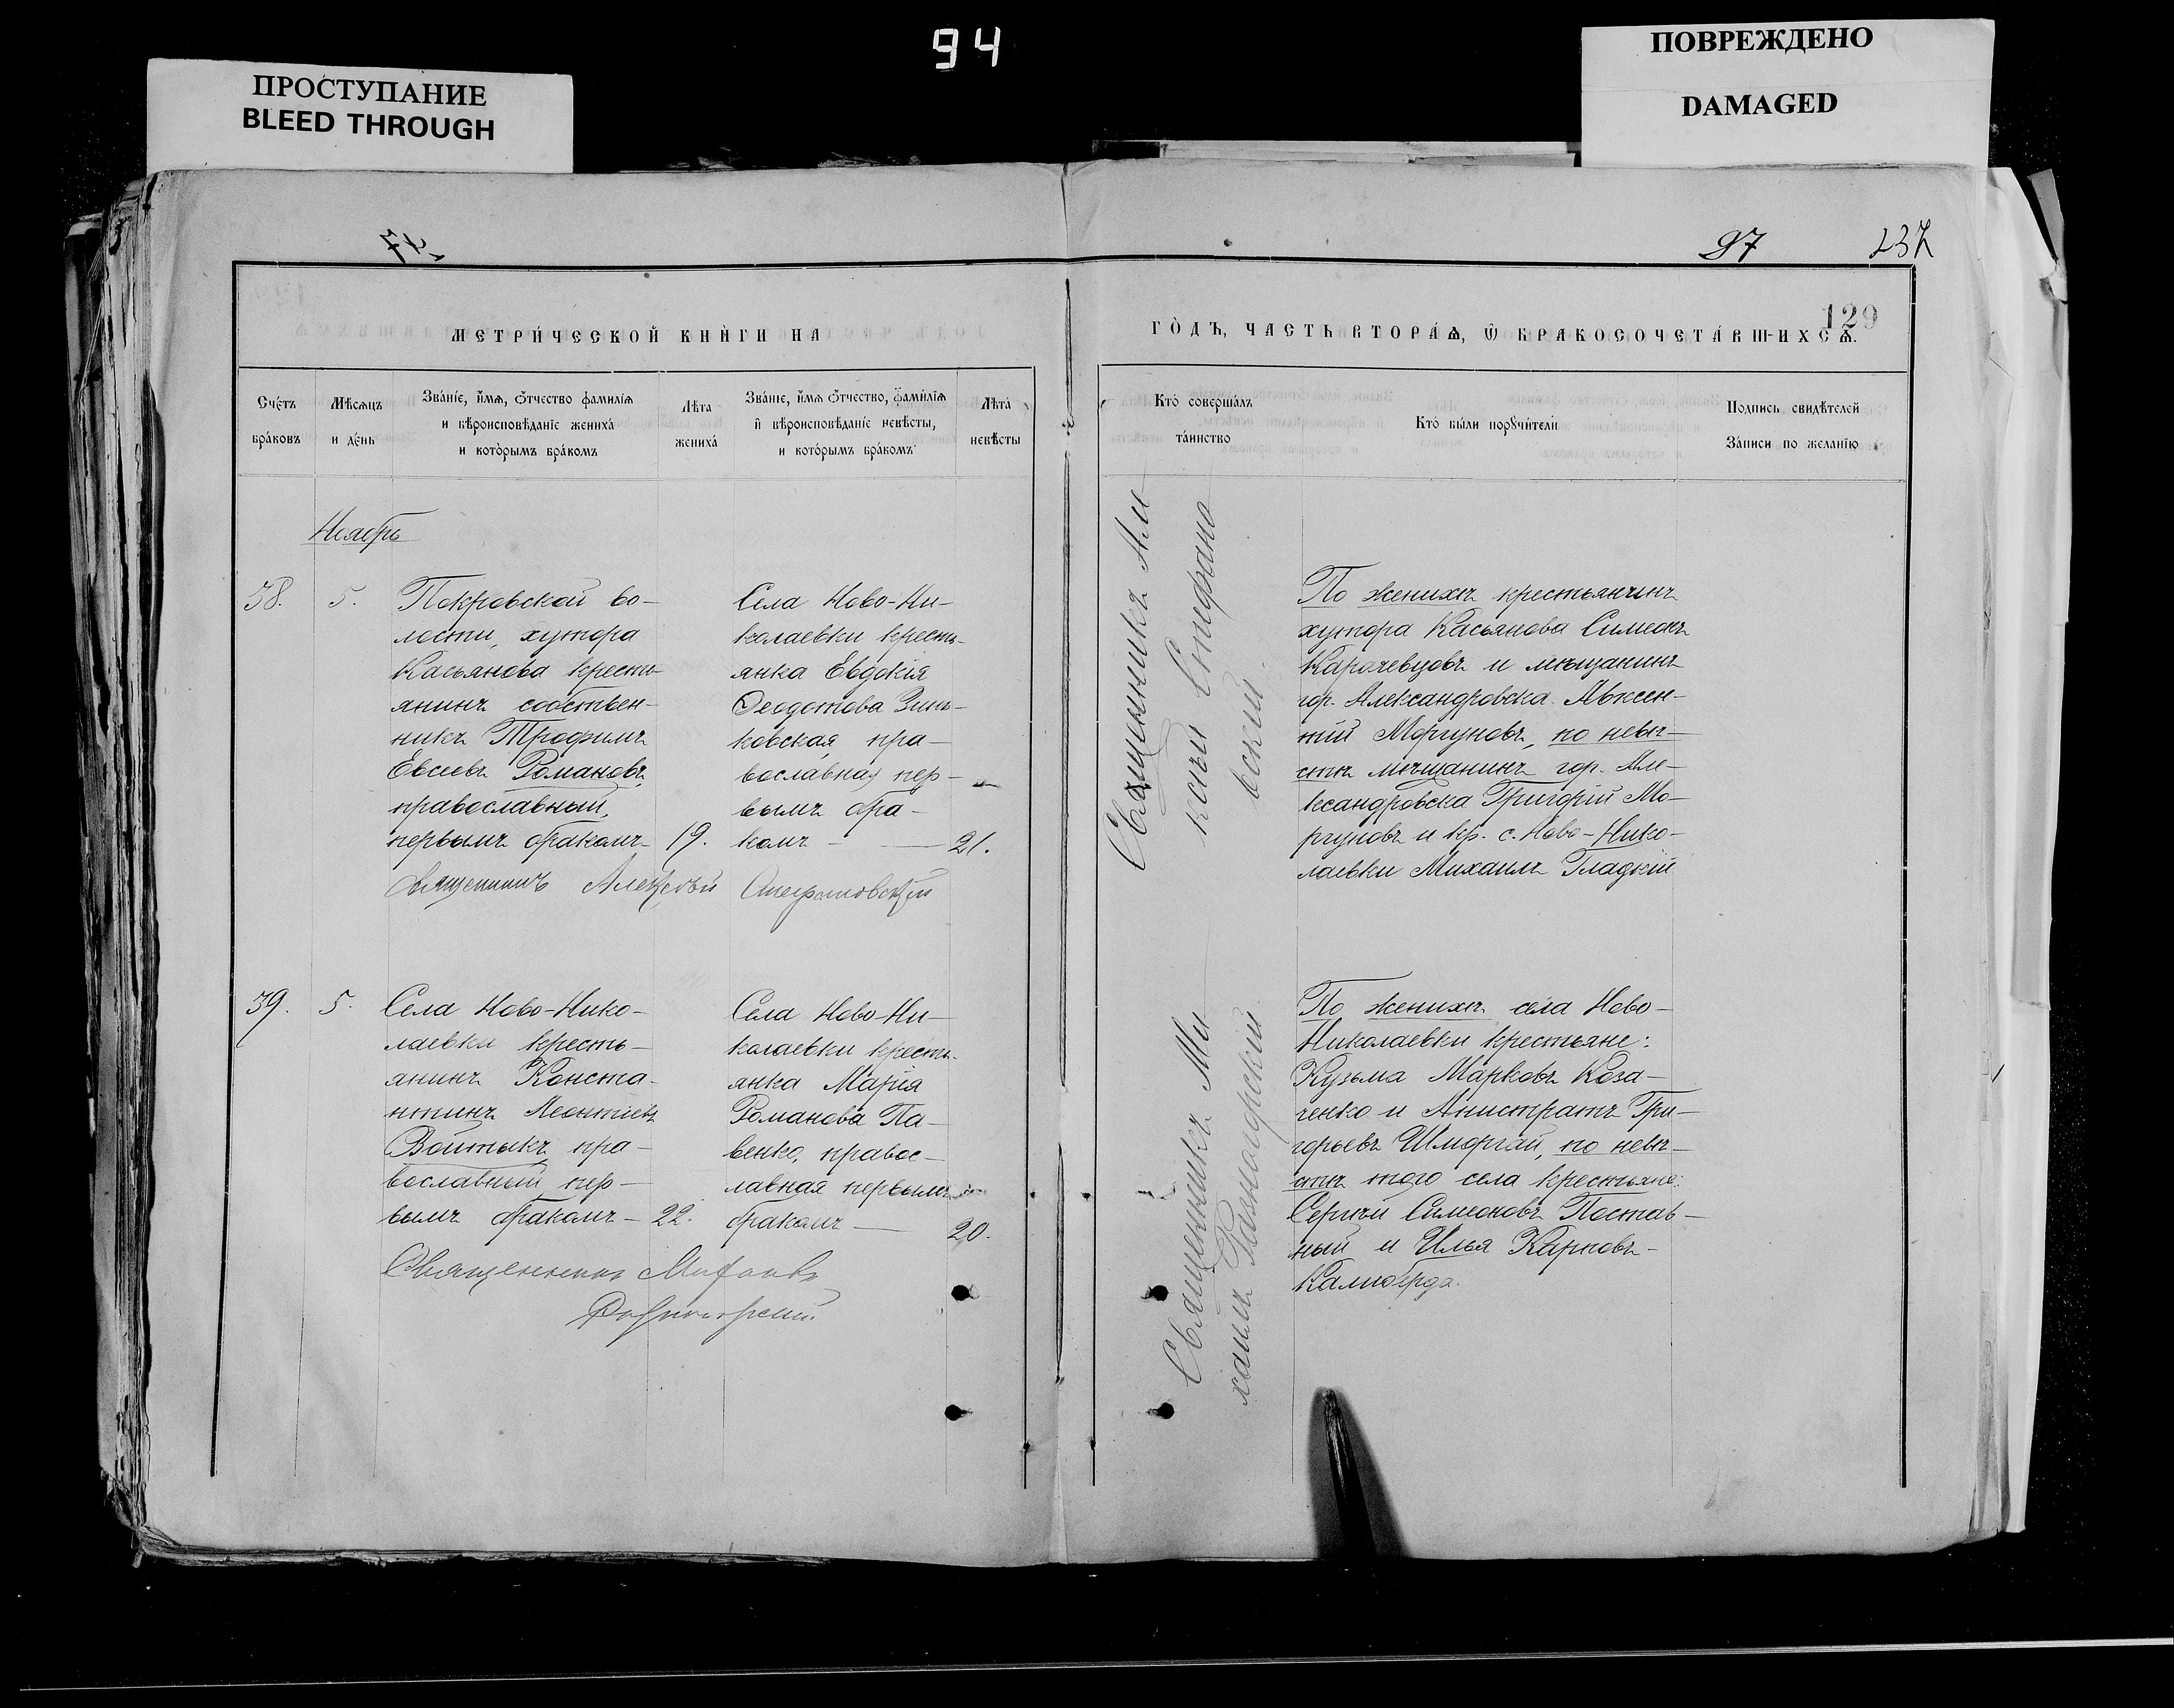 94
ПРОСТУПАНИЕ
BLEED THROUGH
ПОВРЕЖДЕНО
DAMAGED
97
237
129
МЕТРИ́ЧЕСКОЙ КНИ́ГИ НА
ГО́ДЪ, ЧАСТЬ ВТОРА́Ѧ, Ѡ БРАКОСОЧЕТА́ВШИХСѦ.
Сче́тъ
бра́ковъ
Мѣсѧцъ
и де́нь
Зва́нїе, и҆́мѧ, ѻ҆́тчество фами́лїѧ
и вѣроисповѣ́данїе жениха́
и кото́рымъ бра́комъ
Лѣта
жениха́
Зва́нїе, и҆́мѧ ѻ҆́тчество, фами́лїѧ
и҆ вѣроисповѣ́данїе невѣ́сты,
и кото́рымъ бра́комъ
Лѣта́
невѣ́сты
Кто́ соверша́лъ
та́инство
Кто́ бы́ли порꙋчи́тели
Подпись свидѣ́телей
За́писи по жела́нїю
Ноябрь
38.
5.
Покровской во-
лости, хутора
Касьянова кресть-
янинъ собствен-
никъ Трофимъ
Евсеевъ Романовъ,
православный,
первымъ бракомъ
19.
Села Ново-Ни-
колаевки кресть-
янка Евдокія
Ѳеодотова Зинь-
ковская, пра-
вославная пер-
вымъ бра-
комъ
21.
Священникъ Алексѣй Стефановскій
Священникъ Але-
ксѣй Стефано-
вскій.
По женихѣ крестьянинъ
хутора Касьянова Симеонъ
Карачевцовъ и мѣщанинъ
гор. Александровска Авксен-
тій Моргуновъ, по невѣ-
стѣ мѣщанинъ гор. Але-
ксандровска Григорій Мо-
ргуновъ и кр. с. Ново-Нико-
лаевки Михаилъ Гладкій
39.
5.
Села Ново-Нико-
лаевки кресть-
янинъ Конста-
нтинъ Леонтіевъ
Войтыкъ пра-
вославный пер-
вымъ бракомъ
22.
Села Ново-Ни-
колаевки кресть-
янка Марія
Романова Па-
венко, правос-
лавная первымъ
бракомъ
20.
Священникъ Михаилъ
Священникъ Ми-
хаилъ
По женихѣ села Ново-
Николаевки крестьяне:
Кузьма Марковъ Коза-
ченко и Анистратъ Гри-
горьевъ Шморгай, по невѣ-
стѣ того села крестьяне:
Сергѣй Симеоновъ Постав-
ный и Илья Карповъ
Калиберда.